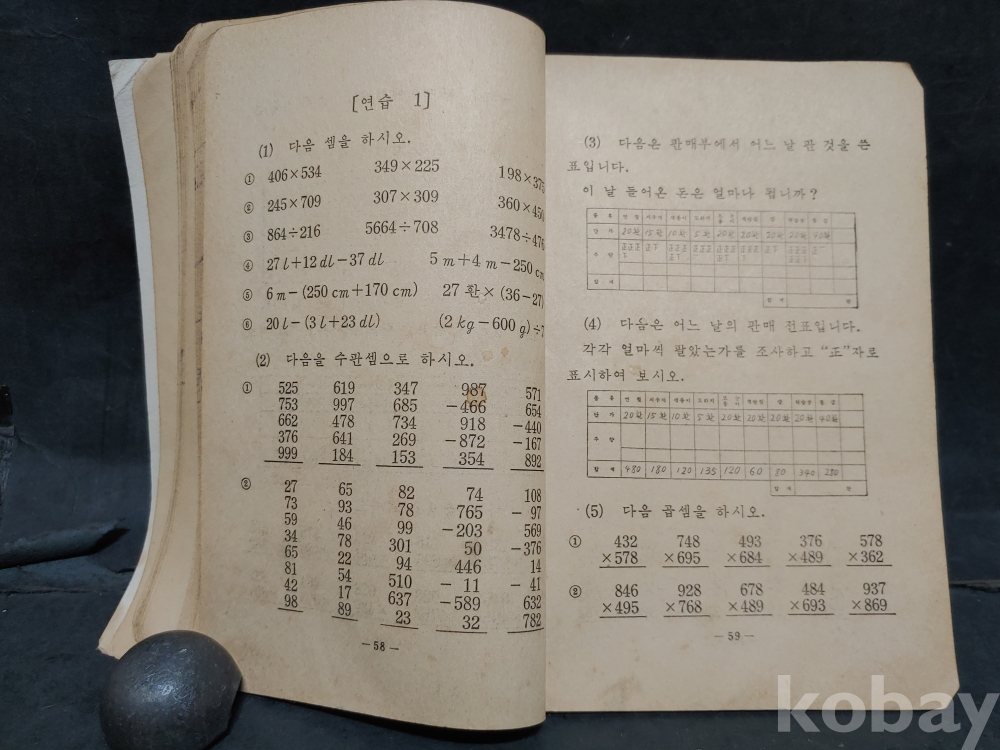 [연습 1]
(1) 다음 셈을 하시오.
① 406×534 349×225 198×375
② 245×709 307×309 360×450
③ 864÷216 5664÷708 3478÷476
④ 27l+12dl−37dl 5m+4m−250cm
⑤ 6m−(250cm+170cm) 27환×(36−27)
⑥ 20l−(3l+23dl) (2kg−600g)÷7
(2) 다음을 수판셈으로 하시오.
① 525 619 347 987 571
753 997 685 −466 654
662 478 734 918 −440
376 641 269 −872 −167
999 184 153 354 892
② 27 65 82 74 108
73 93 78 765 −97
59 46 99 −203 569
34 78 301 50 −376
65 22 94 446 14
81 54 510 −11 −41
42 17 637 −589 632
98 89 23 32 782
—58—
(3) 다음은 판매부에서 어느 날 판 것을 쓴
표입니다.
이 날 들어온 돈은 얼마나 됩니까?
단가 20환 15환 10환 5환 20환 20환 20환 20환 40환
수량
합계
(4) 다음은 어느 날의 판매 전표입니다.
각각 얼마씩 팔았는가를 조사하고 “正”자로
표시하여 보시오.
단가 20환 15환 10환 5환 20환 20환 20환 20환 40환
수량
합계 480 180 120 135 120 60 80 340 280
(5) 다음 곱셈을 하시오.
① 432 748 493 376 578
×578 ×695 ×684 ×489 ×362
② 846 928 678 484 937
×495 ×768 ×489 ×693 ×869
—59—
kobay